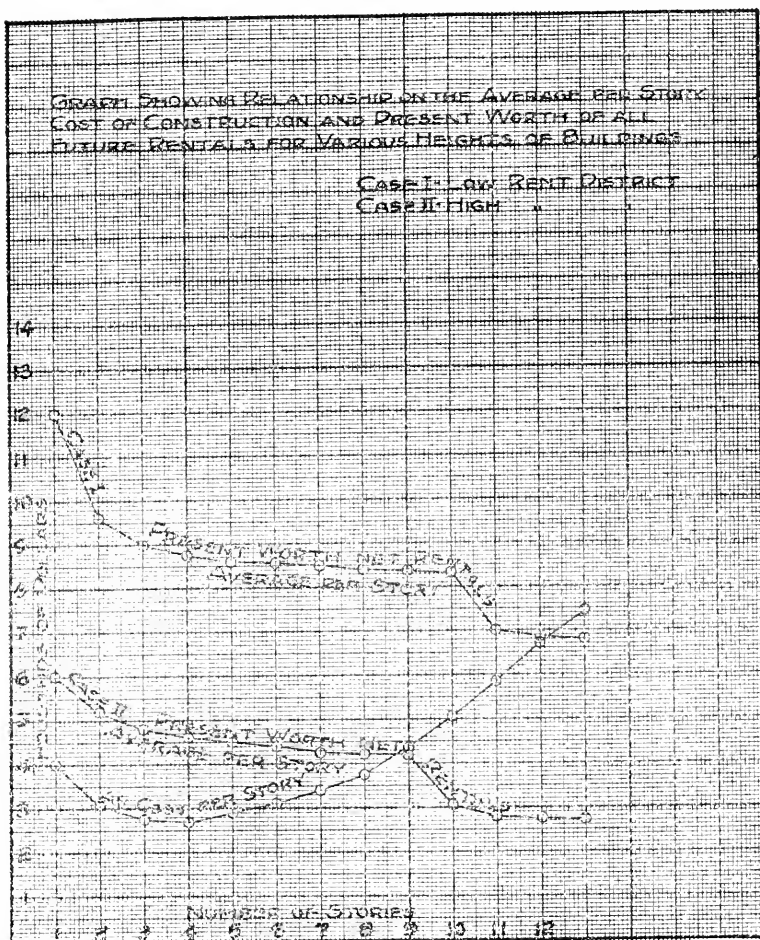 GRAPH SHOWING RELATIONSHIP ON THE AVERAGE PER STORY
COST OF CONSTRUCTION AND PRESENT WORTH OF ALL
FUTURE RENTALS FOR VARIOUS HEIGHTS OF BUILDINGS
CASE I - LOW RENT DISTRICT
CASE II - HIGH " "
14
13
12
11
10
9
8
7
6
5
4
3
2
1
THOUSANDS OF DOLLARS
CASE I
PRESENT WORTH NET RENTALS
AVERAGE PER STORY
CASE II PRESENT WORTH NET RENTALS
AVERAGE PER STORY
AV. COST PER STORY
NUMBER OF STORIES
1 2 3 4 5 6 7 8 9 10 11 12